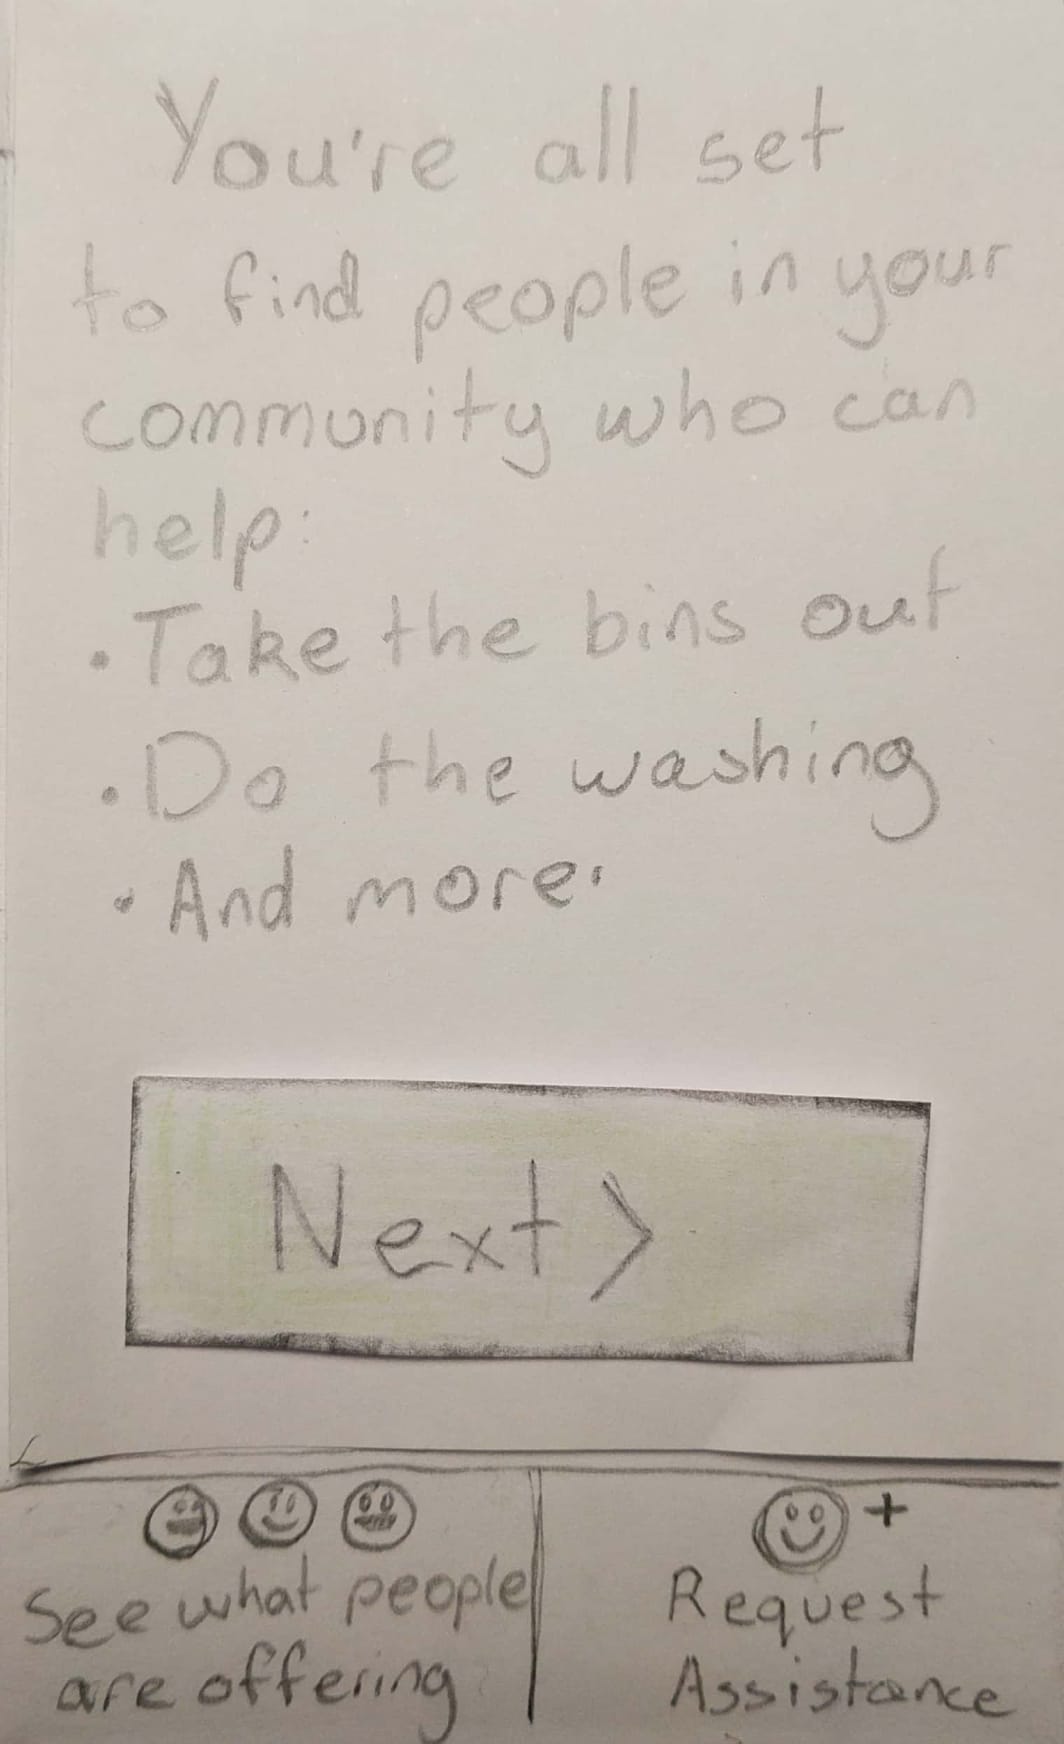 You're all set
to find people in your
community who can
help:
• Take the bins out
• Do the washing
• And more.
Next >
See what people
are offering
+
Request
Assistance